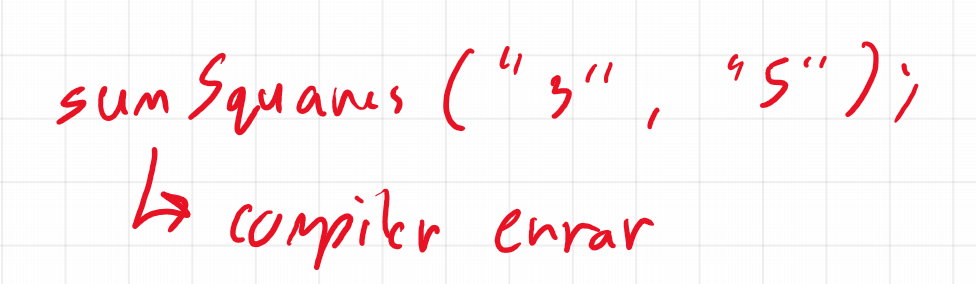 sumSquares ("3", "5");
↳ compiler error